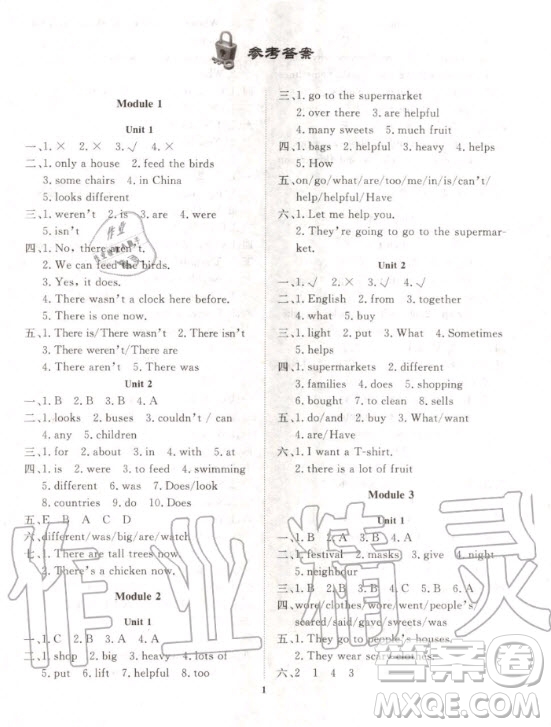 参考答案
Module 1
Unit 1
一、1. × 2. × 3. √ 4. ×
二、1. only a house 2. feed the birds
3. some chairs 4. in China
5. looks different
三、1. weren't 2. is 3. are 4. was
5. isn't
四、1. No, there aren't.
2. We can feed the birds.
3. Yes, it does.
4. There wasn't a clock here before.
5. There is one now.
五、1. There is/There wasn't 2. There isn't
3. There weren't/There are
4. There aren't 5. There was
Unit 2
一、1. C 2. B 3. B 4. A
二、1. looks 2. buses 3. couldn't / can
4. any 5. children
三、1. for 2. about 3. in 4. with 5. at
四、1. are 2. were 3. to feed 4. swimming
5. different 6. was 7. Does/look
8. countries 9. do 10. Does
五、E B A C D
六、different/was/big/are/watch
七、1. There are tall trees now.
2. There's a chicken now.
Module 2
Unit 1
一、1. C 2. B 3. A 4. A
二、1. shop 2. big 3. heavy 4. lots of
5. put 6. lift 7. helpful 8. too
三、1. go to the supermarket
2. over there 3. are helpful
4. many sweets 5. much fruit
四、1. bags 2. helpful 3. heavy 4. helps
5. How
五、on/go/what/are/too/me/in/is/can't/
help/helpful/Have
六、1. Let me help you.
2. They're going to go to the supermar-
ket.
Unit 2
一、1. √ 2. × 3. √ 4. √
二、1. English 2. from 3. together
4. what 5. buy
三、1. light 2. put 3. What 4. Sometimes
5. helps
四、1. supermarkets 2. different
3. families 4. does 5. shopping
6. bought 7. to clean 8. sells
五、1. do/and 2. buy/What/want
4. are/Have
六、1. I want a T-shirt.
2. there is a lot of fruit
Module 3
Unit 1
一、1. B 2. A 3. B 4. C
二、1. festival 2. masks 3. give 4. night
5. neighbour
三、1. B 2. B 3. A 4. C 5. B 6. A
四、wore/clothes/wore/went/people's/
scared/said/gave/sweets/was
五、1. They go to people's houses.
2. They wear scary clothes.
六、2 1 4 3
1
作业精灵
答案卷
MXQE.COM